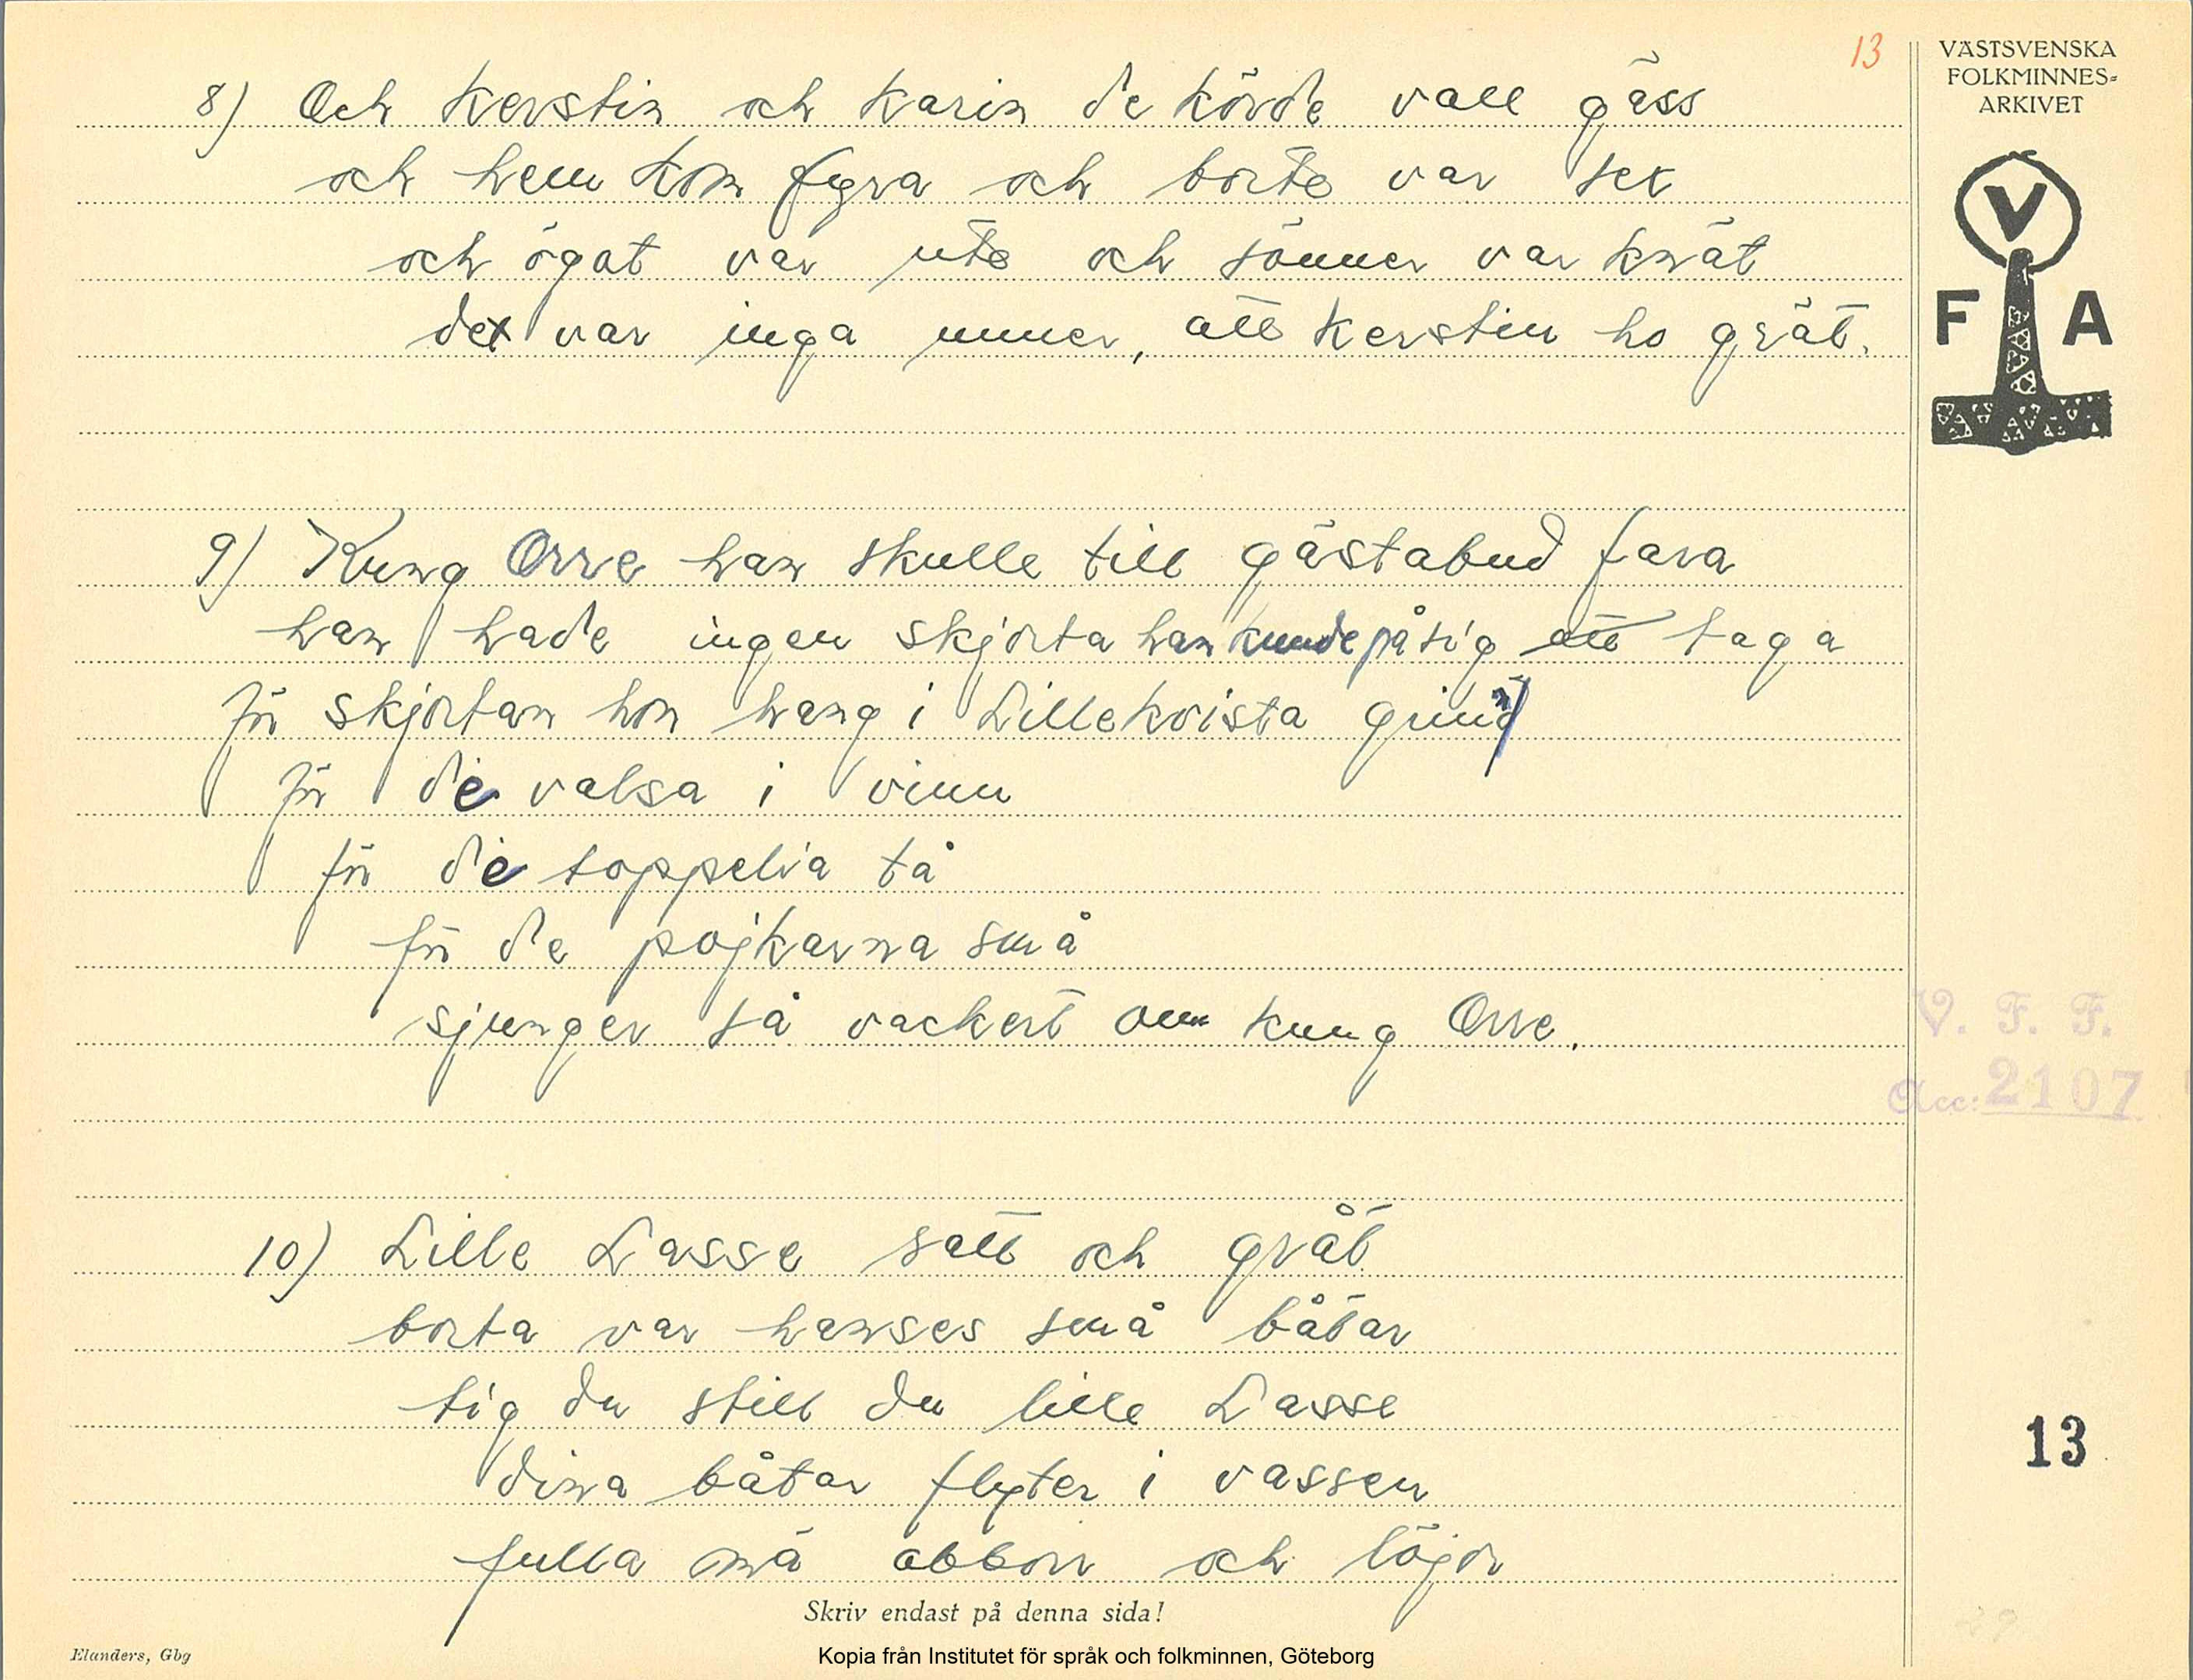 13
VÄSTSVENSKA
FOLKMINNES-
ARKIVET
V
F A
8) Och Kerstin och Karin de körde vall gäss
och hem kom fyra och borte var sex
och ögat var ute och sönner var knät
det var inga unner, att Kerstin ho grät.
9) Kung Orre han skulle till gästabud fara
han hade ingen skjorta han kunde på sig att taga
för skjortan hon hang i Lillekvista grinn
för de valsa i vinn
för de soppelia tå
för de pojkarna små
sjunger så vackert om kung Orre.
V. F. F.
Acc: 2107
10) Lille Lasse satt och gråt
borta var hanses små båtar
tig du still du lille Lasse
dina båtar flyter i vassen
fulla mä abborr och löjor
13
Skriv endast på denna sida!
Elanders, Gbg
Kopia från Institutet för språk och folkminnen, Göteborg